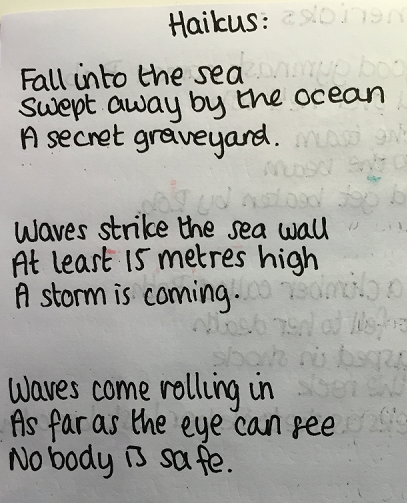 Haikus:
Fall into the sea
Swept away by the ocean
A secret graveyard.
Waves strike the sea wall
At least 15 metres high
A storm is coming.
Waves come rolling in
As far as the eye can see
No body is safe.